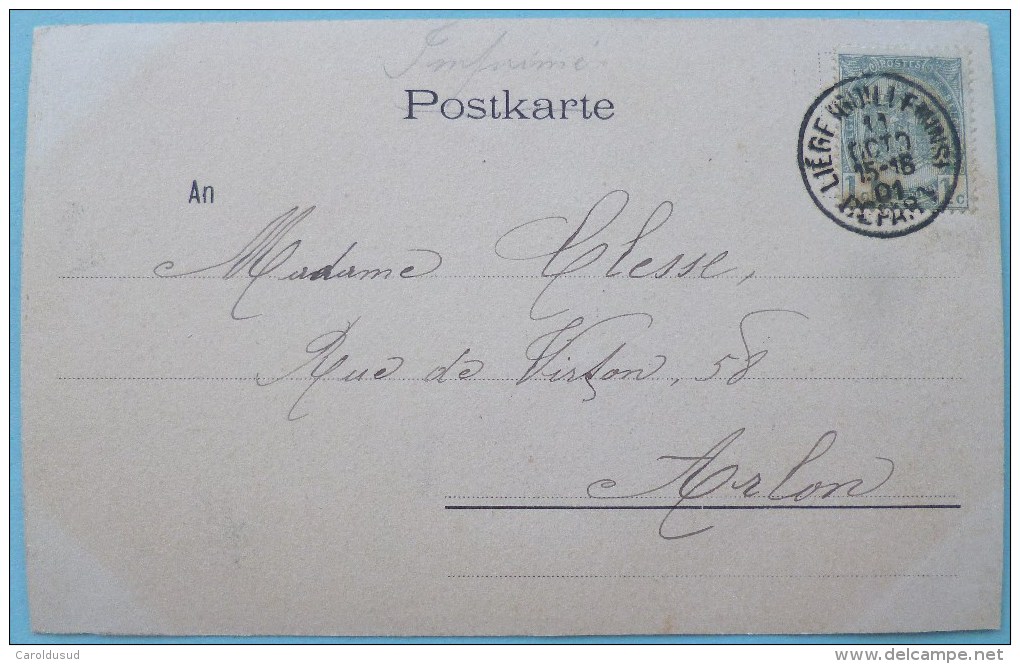 Imprimé
Postkarte
POSTES
LIÉGE (GUILLEMINS)
11
OCTO
15-16
01
DÉPART
1 1
An
Madame Clesse,
Rue de Virton, 58
Arlon
Caroldusud
delcampe.net